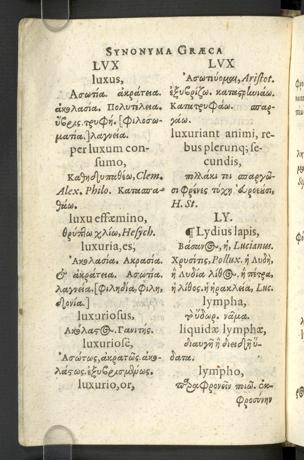 SYNONYMA GRÆCA
LVX
luxus,
Ἀσωτία. ἀκράτεια.
ἀκολασία. Πολυτέλεια.
ὕβρις. τρυφή. [Φιλοσω-
ματία.] λαγνεία.
per luxum con-
sumo,
Καθηδυπαθέω, Clem.
Alex. Philo. Κατασπα-
θάω.
luxu effœmino,
θρύπτω χλίω, Hesych.
luxuria, es,
Ἀκολασία. Ἀκρασία.
& ἀκράτεια. Ἀσωτία.
λαγνεία. [Φιληδία, Φιλη-
δονία.]
luxuriosus,
Ἀκόλαστος. Γανίτης.
luxuriosè,
Ἀσώτως, ἀκρατῶς. ἀκο-
λάστως. ἐξυβρισμένως.
luxurio, or,
LVX
Ἀσωτεύομαι, Aristot.
ἐξυβρίζω. καταστρηνιάω.
Κατατρυφάω. σπαρ-
γάω.
luxuriant animi, re-
bus plerunq; se-
cundis,
πολλάκι
σι φρένες
H. St.
LY.
¶ Lydius lapis,
Βάσανος, ἡ, Lucianus.
Χρυσίτις, Pollux. ἡ Λυδή,
ἡ Λυδία λίθος. ἡ πέτρα,
ἡ λίθος. ἡ ἡρακλεία, Luc.
lympha,
ὕδωρ. νᾶμα.
liquidæ lymphæ,
διαυγῆ ἢ διειδῆ ὕ-
δατα.
lympho,
παραφρονεῖν ποιῶ. ἐκ-
φροσύνην